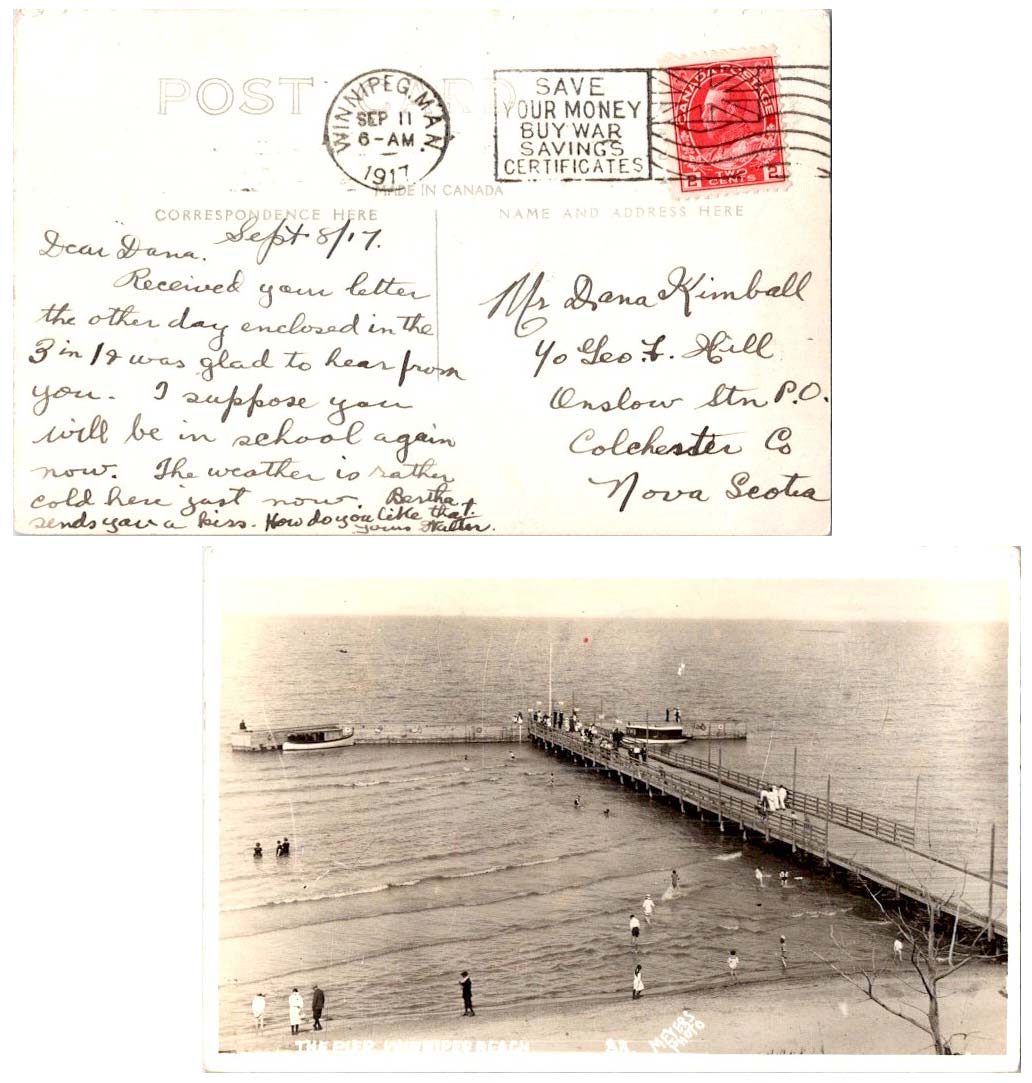 POST CARD
WINNIPEG, MAN.
SEP 11
6-AM
1917
SAVE
YOUR MONEY
BUY WAR
SAVINGS
CERTIFICATES
CANADA POSTAGE
2 TWO CENTS 2
MADE IN CANADA
CORRESPONDENCE HERE
NAME AND ADDRESS HERE
Sept 8/17.
Dear Dana.
Received your letter
the other day enclosed in the
3 in 1 & was glad to hear from
you. I suppose you
will be in school again
now. The weather is rather
cold here just now. Bertha
sends you a kiss. How do you like that.
yours Walter.
Mr Dana Kimball
c/o Geo F. Hill
Onslow Stn P.O.
Colchester Co
Nova Scotia
THE PIER WINNIPEG BEACH
MEYERS
PHOTO